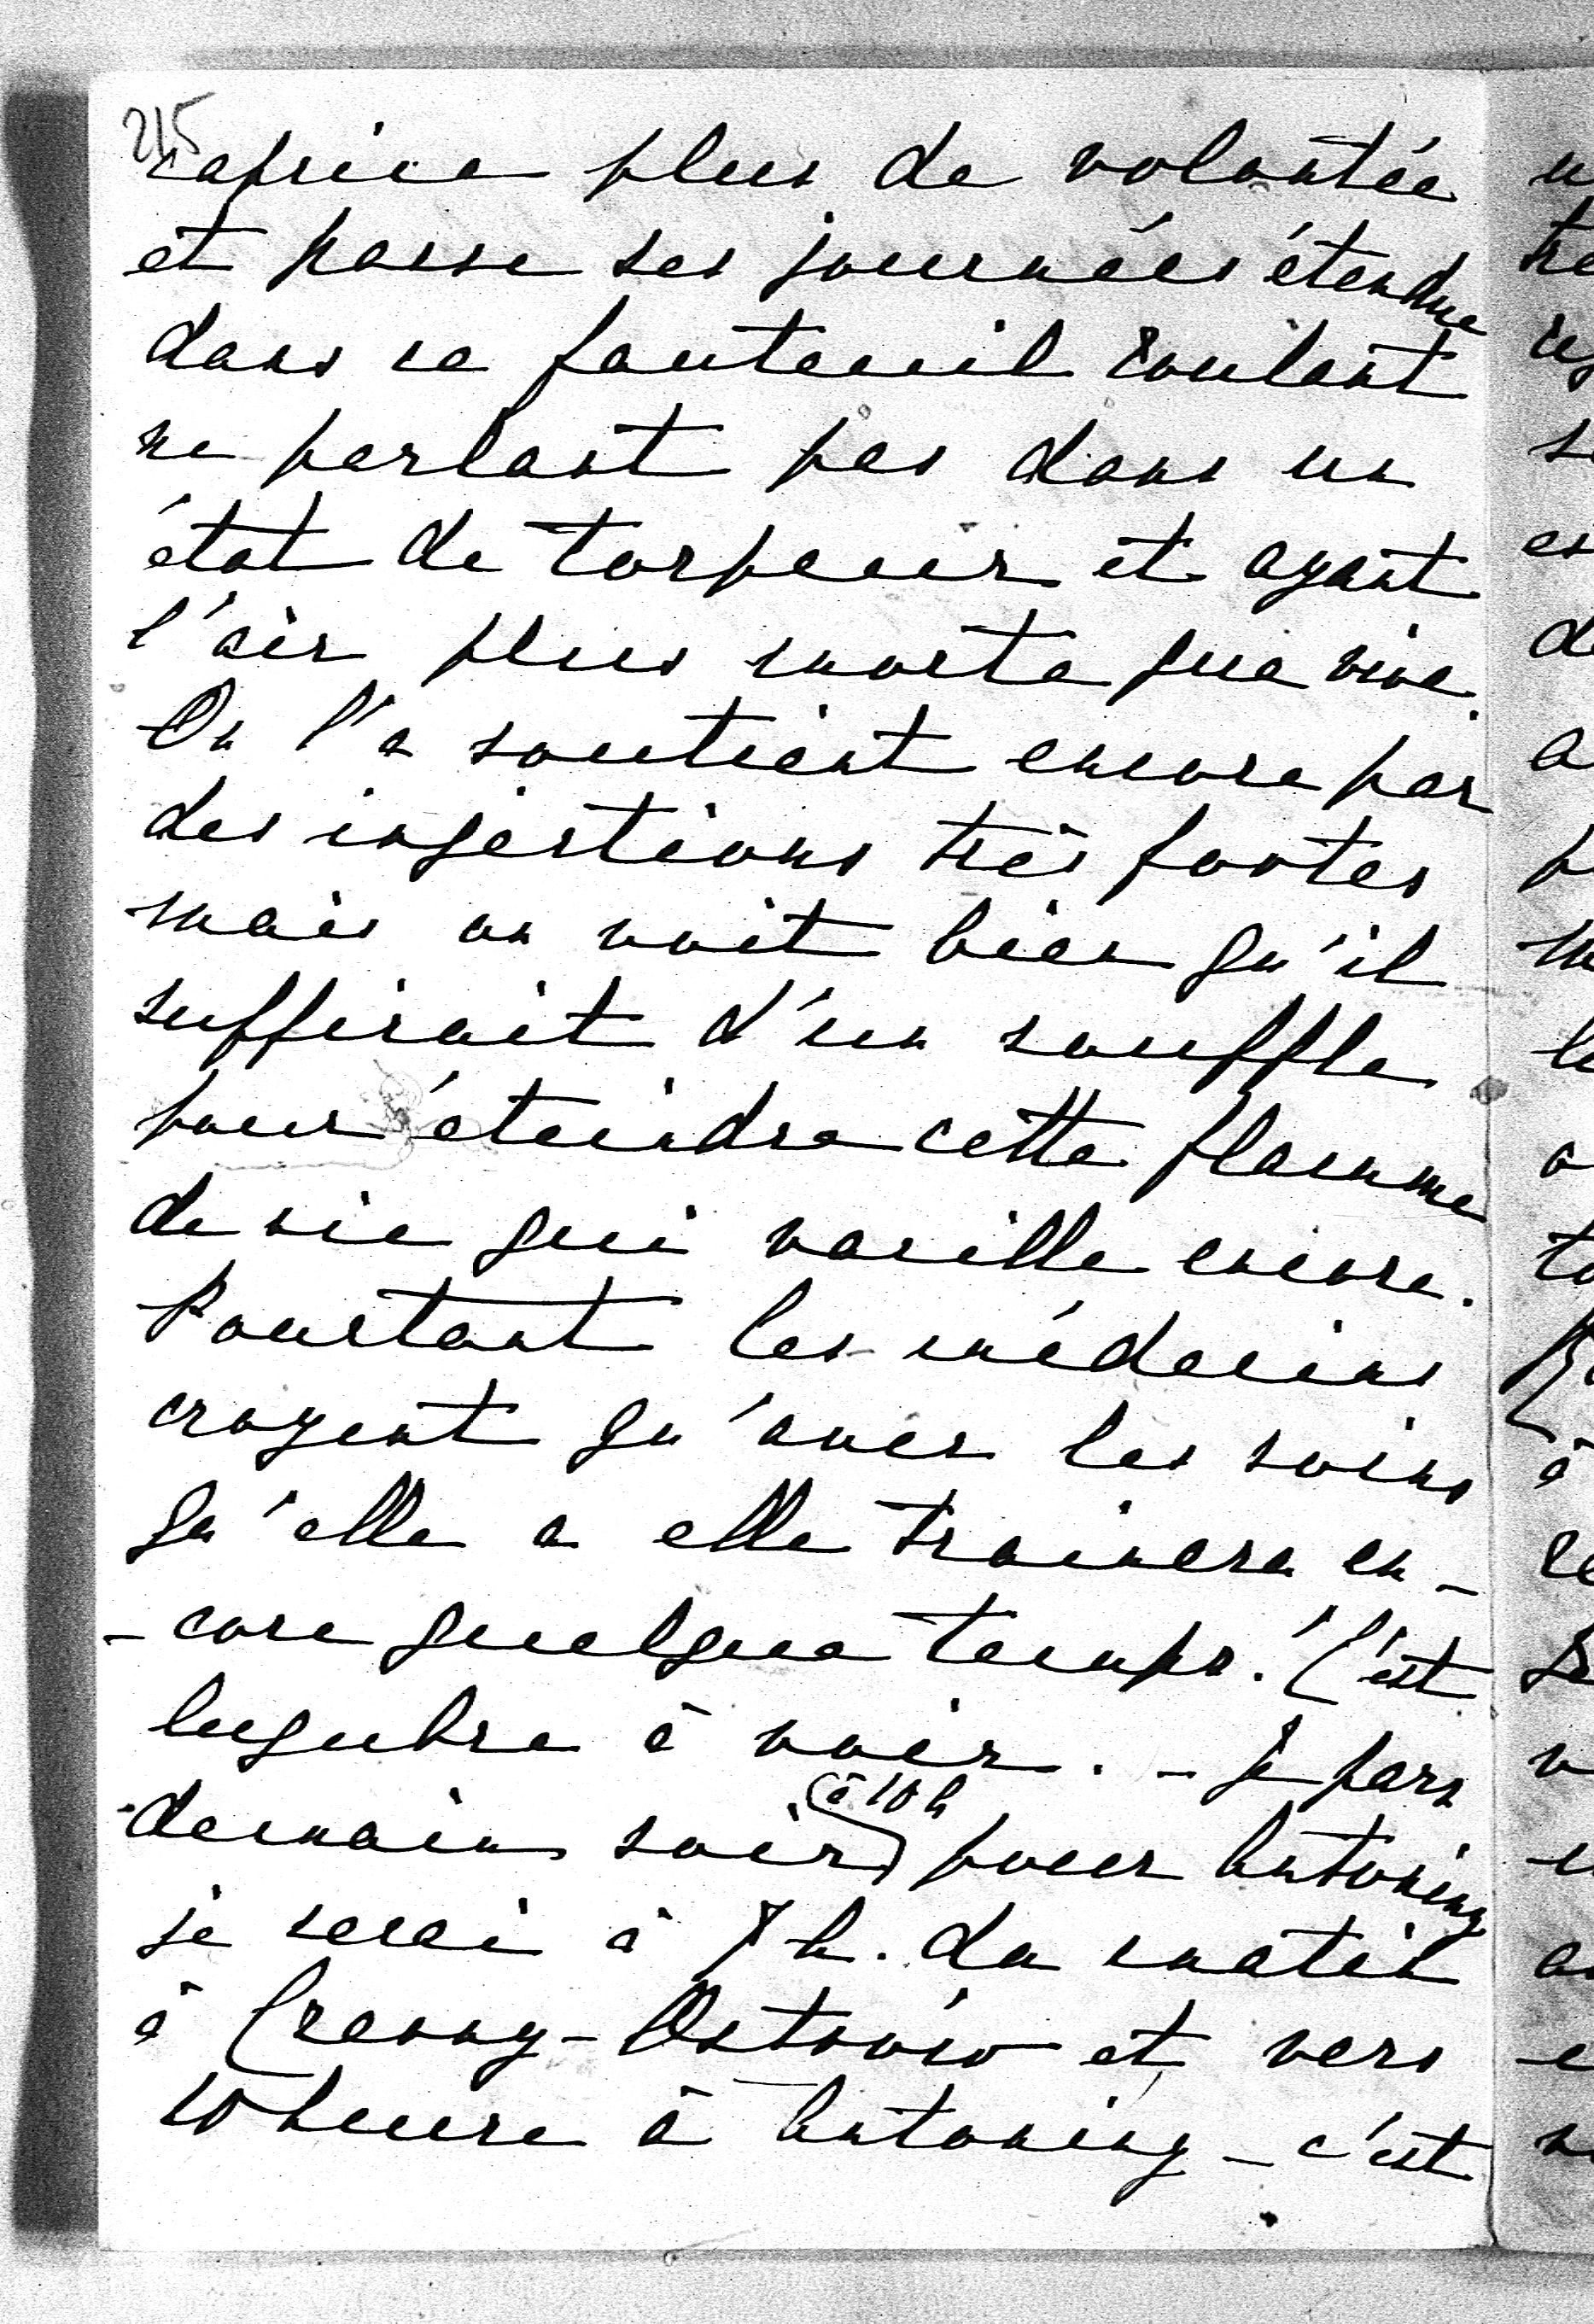 215
caprice plus de volontée
et passe ses journées étendue
dans ce fauteuil roulant
ne parlant pas dans un
état de torpeur et ayant
l'air plus morte que vive.
On l'a soutient encore par
des injections très fortes
mais on voit bien qu'il
suffirait d'un souffle
pour éteindre cette flamme
de vie qui vacille encore.
Pourtant les médecins
croyent qu'avec les soins
qu'elle a elle trainera en-
-core quelque temps. C'est
lugubre à voir. - Je pars
(à 10 h
demain soir) pour Antoniny
je serai à 7 h. du matin
à Crenny-Ostrów et vers
10 heure à Antoniny - c'est